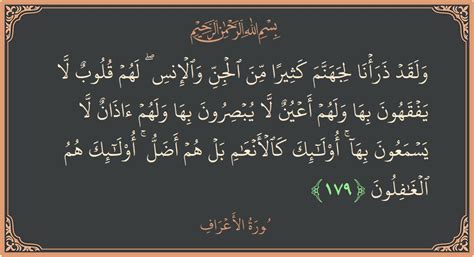 بِسْمِ اللَّهِ الرَّحْمَٰنِ الرَّحِيمِ
وَلَقَدْ ذَرَأْنَا لِجَهَنَّمَ كَثِيرًا مِّنَ الْجِنِّ وَالْإِنسِ ۖ لَهُمْ قُلُوبٌ لَّا
يَفْقَهُونَ بِهَا وَلَهُمْ أَعْيُنٌ لَّا يُبْصِرُونَ بِهَا وَلَهُمْ ءَاذَانٌ لَّا
يَسْمَعُونَ بِهَا ۚ أُولَٰئِكَ كَالْأَنْعَٰمِ بَلْ هُمْ أَضَلُّ ۚ أُولَٰئِكَ هُمُ
الْغَٰفِلُونَ ﴿١٧٩﴾
سُورَةُ الأَعْرَافِ